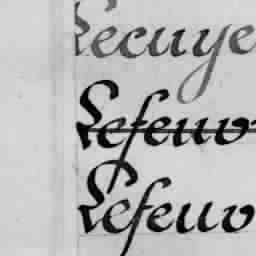 Lecuye
Lefeuv
Lefeuv